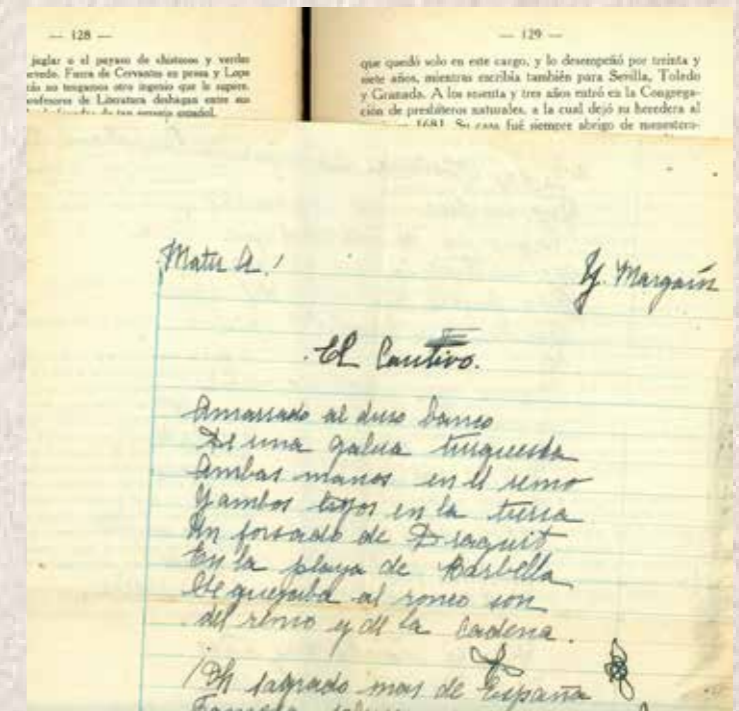 — 128 —
juglar o el payaso de chistosos y verdes
evedo. Fuera de Cervantes en prosa y Lope
rás no tengamos otro ingenio que le supere.
rofesores de Literatura deshagan entre sus
de tan egregio español.
— 129 —
que quedó solo en este cargo, y lo desempeñó por treinta y
siete años, mientras escribía también para Sevilla, Toledo
y Granada. A los sesenta y tres años entró en la Congrega-
ción de presbíteros naturales, a la cual dejó su heredera al
1681. Su casa fué siempre abrigo de menestero-
Y. Margarín
El Cautivo.
Amarrado al duro banco
De una galera turquesca
Ambas manos en el remo
Y ambos ojos en la tierra
Un forzado de Dragut
En la playa de Marbella
Se quejaba al ronco son
del remo y de la cadena.
¡Oh sagrado mar de España
Famosa